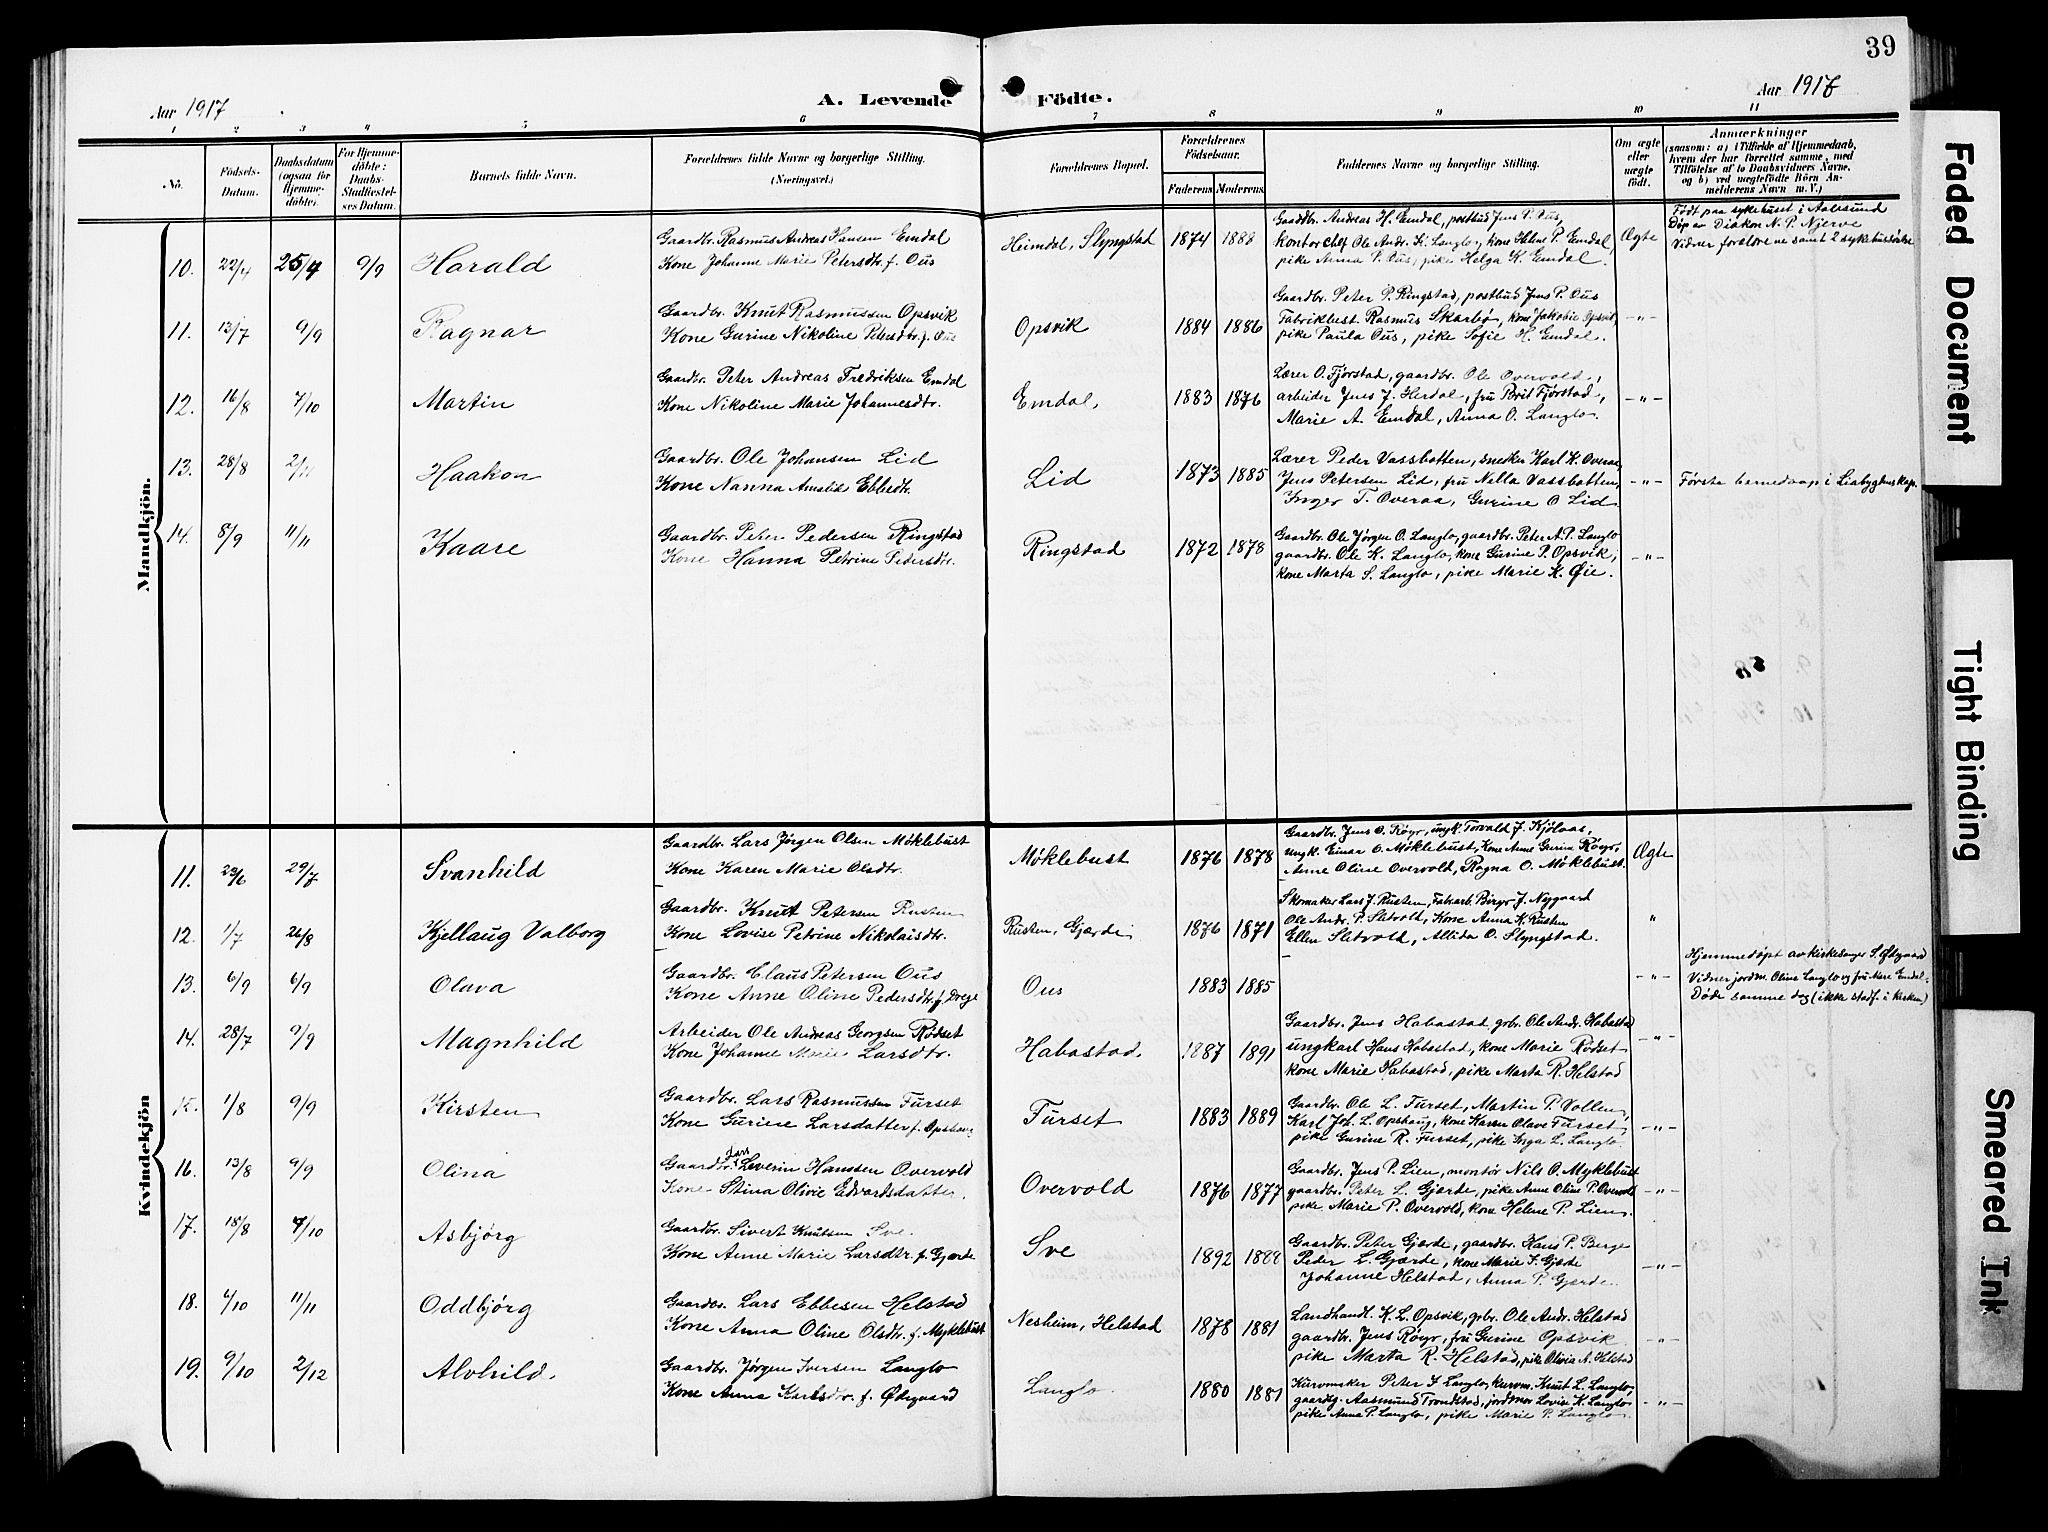 39
Aar 1917
A. Levende Födte.
Aar 1917
1 2 3 4 5 6 7 8 9 10 11
No.
Födsels-Datum.
Daabsdatum (ogsaa for Hjemme-döbte).
For Hjemme-döbte: Daabs-Stadfæstel-ses Datum.
Barnets fulde Navn.
Forældrenes fulde Navne og borgerlige Stilling.
(Næringsvei.)
Forældrenes Bopæl.
Forældrenes Födselsaar.
Faderens. Moderens.
Faddernes Navne og borgerlige Stilling.
Om ægte eller uægte födt.
Anmærkninger
(saasom: a) i Tilfælde af Hjemmedaab,
hvem der har forrettet samme, med
Tilföielse af to Daabsvidners Navne,
og b) ved uægtefödte Börn An-
melderens Navn m. V.)
Mandkjön.
10. 22/4 25/4 9/9 Harald
Gaardbr. Rasmus Andreas Hansen Emdal
Kone Johanne Marie Petersdtr. f. Ous
Heimdal, Slyngstad 1874 1888
Gaardbr. Andreas H. Emdal, postbud Jens P. Ous,
kontorchef Ole Andr. K. Langlo, kone Helene P. Emdal,
pike Anna P. Ous, pike Helga K. Emdal.
Ægte
Født paa sykehuset i Aalesund
Døp av Diakon N. P. Njerve
Vidner forældrene samt 2 sykehussøstre
11. 13/7 9/9 Ragnar
Gaardbr. Knut Rasmussen Opsvik
Kone Gurine Nikoline Petersdtr. f. Ous
Opsvik 1884 1886
Gaardbr. Peter P. Ringstad, postbud Jens P. Ous
Fabrikbest. Rasmus Skarbø, kone Jakobie Opsvik,
pike Paula Ous, pike Sofie H. Emdal.
-"-
12. 16/8 7/10 Martin
Gaardbr. Peter Andreas Fredriksen Emdal
Kone Nikoline Marie Johannesdtr.
Emdal, 1883 1876
Lærer O. Fjørstad, gaardbr. Ole Overvold,
arbeider Jens J. Herdal, fru Brit Fjørstad,
Marie A. Emdal, Anna O. Langlo.
-"-
13. 28/8 2/11 Haakon
Gaardbr. Ole Johansen Lid
Kone Nanna Amalie Ebbedtr.
Lid 1873 1885
Lærer Peder Vassbotten, snekker Karl K. Overaa,
Jens Petersen Lid, fru Nella Vassbotten,
Inger T. Overaa, Gurine O Lid
-"-
Første barnedaap i Liabygdens kap.
14. 8/9 11/11 Kaare
Gaardbr. Peter Pedersen Ringstad
Kone Hanna Petrine Pedersdtr.
Ringstad 1872 1878
Gaardbr. Ole Jørgen O. Langlo, gaardbr. Peter A. P. Langlo
gaardbr. Ole K. Langlo, kone Gurine P. Opsvik,
kone Marta S. Langlo, pike Marie K. Øie.
-"-
Kvindekjön
11. 23/6 29/7 Svanhild
Gaardbr. Lars Jørgen Olsen Møklebust
Kone Karen Marie Olsdtr.
Møklebust 1876 1878
Gaardbr. Jens O. Røyr, ungk. Torvald J. Kjølaas,
ungk. Einar O. Møklebust, Kone Anne Gurine Røyr,
Anne Oline Overvold, Ragna O. Møklebust.
Ægte
12. 1/7 26/8 Kjellaug Valborg
Gaardbr. Knut Petersen Rusten
Kone Lovise Petrine Nikolaisdtr.
Rusten, Gjærde 1876 1871
Skomaker Lars J. Rusten, Fabrarb. Birger J. Nygaard
Ole Andr. P. Sletvold, Kone Anna K. Rusten
Ellen Sletvold, Allida O. Slyngstad.
"
13. 6/9 6/9 Olava
Gaardbr. Claus Petersen Ous
Kone Anne Oline Pedersdtr. f. Drege
Ous 1883 1885
-"-
Hjemmedøpt av kirkesanger S. Østgaard
Vidner jordm. Oline Langlo og fru Mare Emdal.
Døde samme dag (ikke stadf. i kirken)
14. 28/7 9/9 Magnhild
Arbeider Ole Andreas Georgsen Rødset
Kone Johanne Marie Larsdtr.
Habostad, 1887 1891
Gaardbr. Jens Habostad, grbr. Ole Andr. Habostad
ungkarl Hans Habostad, kone Marie Rødset
kone Marie Habostad, pike Marta R. Helstad
-"-
15. 1/8 9/9 Kirsten
Gaardbr. Lars Rasmussen Furset
Kone Gurine Larsdatter f. Opshaug
Furset 1883 1889
Gaardbr. Ole L. Furset, Martin P. Vollen,
Karl Joh. L. Opshaug, kone Karen Olave Furset,
pike Gurine R. Furset, pike Inga L. Langlo
-"-
16. 13/8 9/9 Olina
Gaardbr. Lars Severin Hanssen Overvold
Kone Stina Olivie Edvardsdatter.
Overvold 1876 1877
Gaardbr. Jens P. Lien, montør Nils O. Myklebust
gaardbr. Peter L. Gjærde, pike Anne Oline P. Overvold
pike Marie P. Overvold, kone Helene P. Lien.
-"-
17. 18/8 7/10 Asbjørg
Gaardbr. Sivert Knutsen Sve.
Kone Anne Marie Larsdtr. f. Gjærde
Sve 1892 1888
Gaardbr. Peter Gjærde, gaardbr. Hans P. Berge
Peder L. Gjærde, kone Marie J. Gjærde
Johanne Helstad, Anna P. Gjærde.
-"-
18. 6/10 11/11 Oddbjørg
Gaardbr. Lars Ebbesen Helstad
Kone Anna Oline Olsdtr. f. Myklebust
Nesheim, Helstad 1878 1881
Landhandl. K. L. Opsvik, grbr. Ole Andr. Helstad
gaardbr. Jens Røyr, fru Gurine Opsvik
pike Marta R. Helstad, pike Olivia A. Helstad
-"-
19. 9/10 2/12 Alvhild.
Gaardbr. Jørgen Iversen Langlo
Kone Anna Karlsdtr. f. Ødegaard
Langlo. 1880 1881
Kurvmaker Peter J. Langlo, kurvm. Knut L. Langlo,
gaardbr. Aasmund Trondstad, jordmor Lovise K. Langlo
pike Anna P. Langlo, pike Marie P. Langlo.
-"-
Faded Document
Tight Binding
Smeared Ink